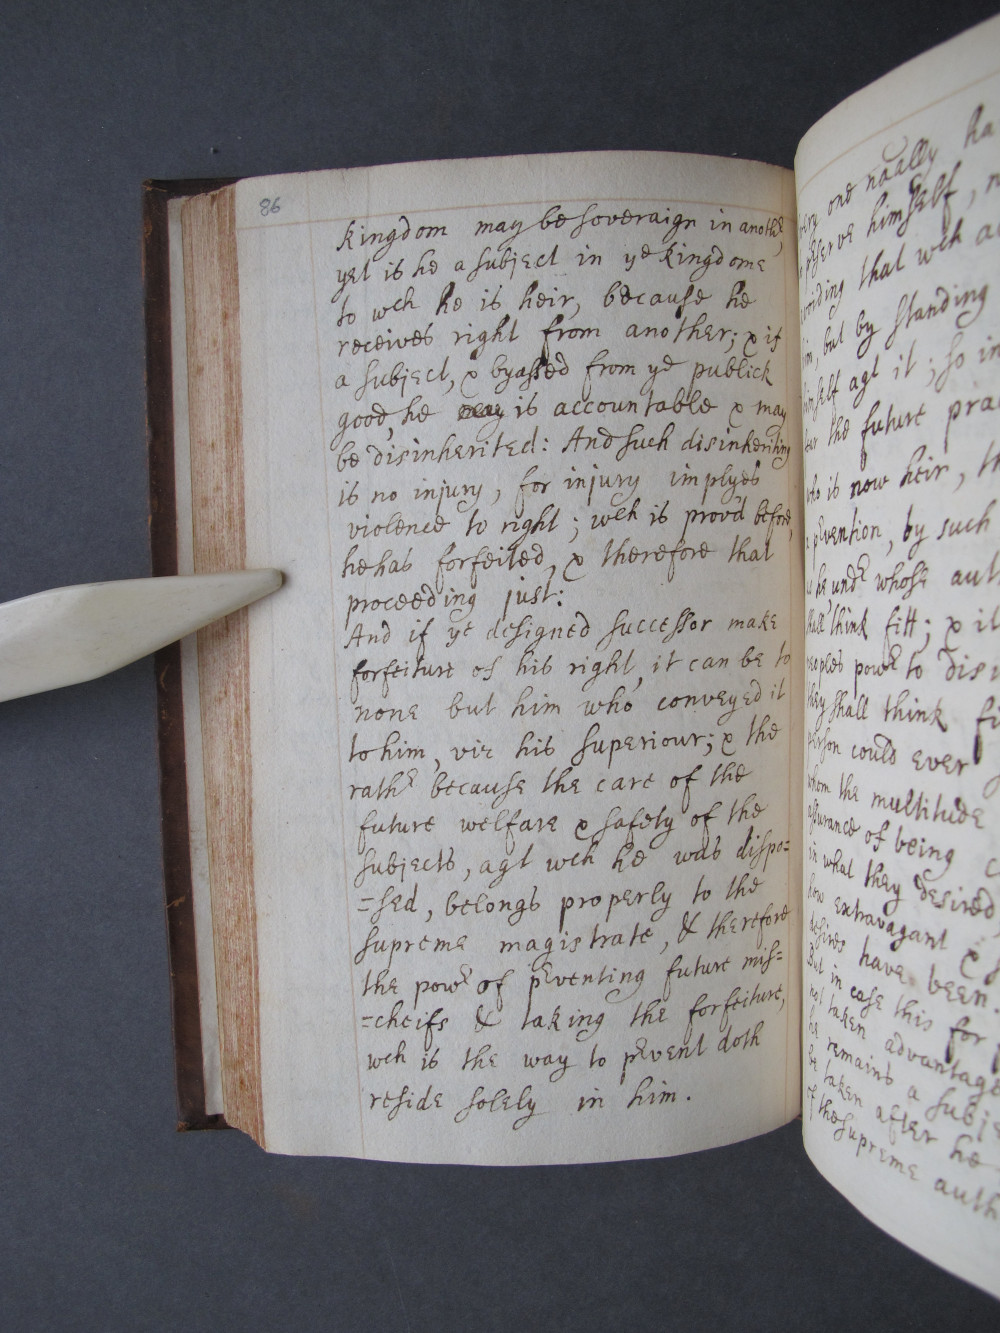 86
kingdom may be soveraign in anothe^r,
yet is he a subject in y^e kingdome
to w^ch he is heir, because he
receives right from another; & if
a subject, & byassed from y^e publick
good, he is accountable & may
be disinherited: And such disinheriting
is no injury, for injury implyes
violence to right; w^ch is prov'd before,
he has forfeited, & therefore that
proceeding just:
And if y^e designed successor make
forfeiture of his right, it can be to
none but him who conveyed it
to him, viz his superiour; & the
rath^r because the care of the
future welfare & safety of the
subjects, ag^t w^ch he was dispo=
=sed, belongs properly to the
supreme magistrate, & therefore
the pow^r of p^rventing future mis=
=cheifs & taking the forfeiture,
w^ch is the way to p^rvent doth
reside solely in him.
one naâlly ha
himself,
that w^ch
but by standing
ag^t it; so in
the future
who is now heir, th
p^rvention, by such
he, und^r whose aut
think fitt; & it
pow^r to dis
they shall think fi
could ever
whom the multitude
assurance of being
in what they desired
how extravagant &
desires have been.
But in case this for
taken advantage
he remains a subje
be taken after he
of the supreme auth